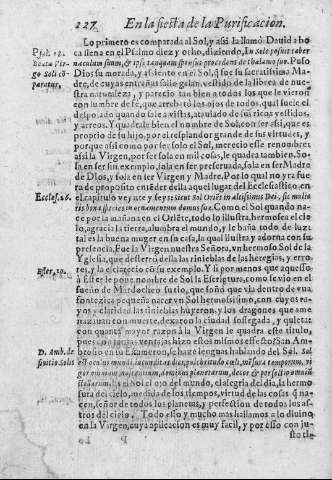 227 En la fiesta de la Purificacion.
Lo primero es comparada al Sol, y assi la llamó Dauid a bo
ca llena en el Psalmo diez y ocho, diziendo, In Sole posuit taber
Psal. 18.
Beata Vir-
go Soli cõ-
paratur,
naculum suum, & ipse tanquam sponsus procedens de thalamo suo. Puso
Dios su morada, y assiento en el Sol, q̃ fue su sacratissima Ma
dre, de cuyas entrañas salio galan, vestido de la librea de
nuestra naturaleza, y parecio tan bien a todos los que le vieron
con lumbre de fé, que arrebató los ojos de todos, qual sucle el
despo ado quando sale a vistas, atauiado de sus ricos vestidos,
y arreos. Y quadrale bien el nombre de Sol, con ser assi, que es
proprio de su hijo, por el resplandor grande de sus virtudes, y
porque assi como por ser solo el Sol, merecio esse renombre
assi la Virgen, por ser sola en mil cosas, le quadra tambien. So
la en ser sin exemplo, sola en ser preseruada, sola en ser Madre
de Dios, y sola en ser Virgen y Madre. Por lo qual no yra fue
ra de proposito entẽder della aquel lugar del Ecclesiastico en
Ecclesi. 26.
el capitulo veynte y seys: sicut Sol Oriẽs in altissimis Dei, sic mulie
ris bonæ species in ornamentum domus suæ. Como el Sol quando na-
ce por la mañana en el Oriẽte, todo lo ilustra, hermosea el cie
lo, agracia la tierra, alumbra el mundo, y le baña todo de luz
tal es la buena muger en su casa, la qual ilustra y adorna con su
presencia. Fue la Virgen nuestra Señora, vn hermoso Sol de la
Yglesia, que desterró della las tinieblas de las heregias, y erro
res, y la esclarecio cõ su exemplo. Y si por menos que aquesso
Ester, 10.
á Ester le pone nombre de Sol la Escriptura, como se vio en el
sueño de Mardocheo su tio, que soñó que via dentro de vna
fontezica pequeña nacer vn Sol hermosissimo, con cuyos ra-
yos y claridad las tinieblas huyeron, y los dragones que ame
nazauan con muerte, dexaron la ciudad sossegada, y quieta,
con quanta mayor razon à la Virgen le quadra este titulo,
D. Amb. de
fertio Solis
brosio en su Exameron, se haze lenguas hablando del Sol. Sol
Es el Sol el ojo del mundo, el alegria del dia, la hermo
sura del cielo, medida de los tiempos, virtud de las cosas q̃ na
cen, señor de todos los planetas, y perfection de todos los as-
tros del cielo. Todo esso y mucho mas hallamos a lo diuino
en la Virgen, cuya aplicacion es muy facil, y por esso con ju
sto